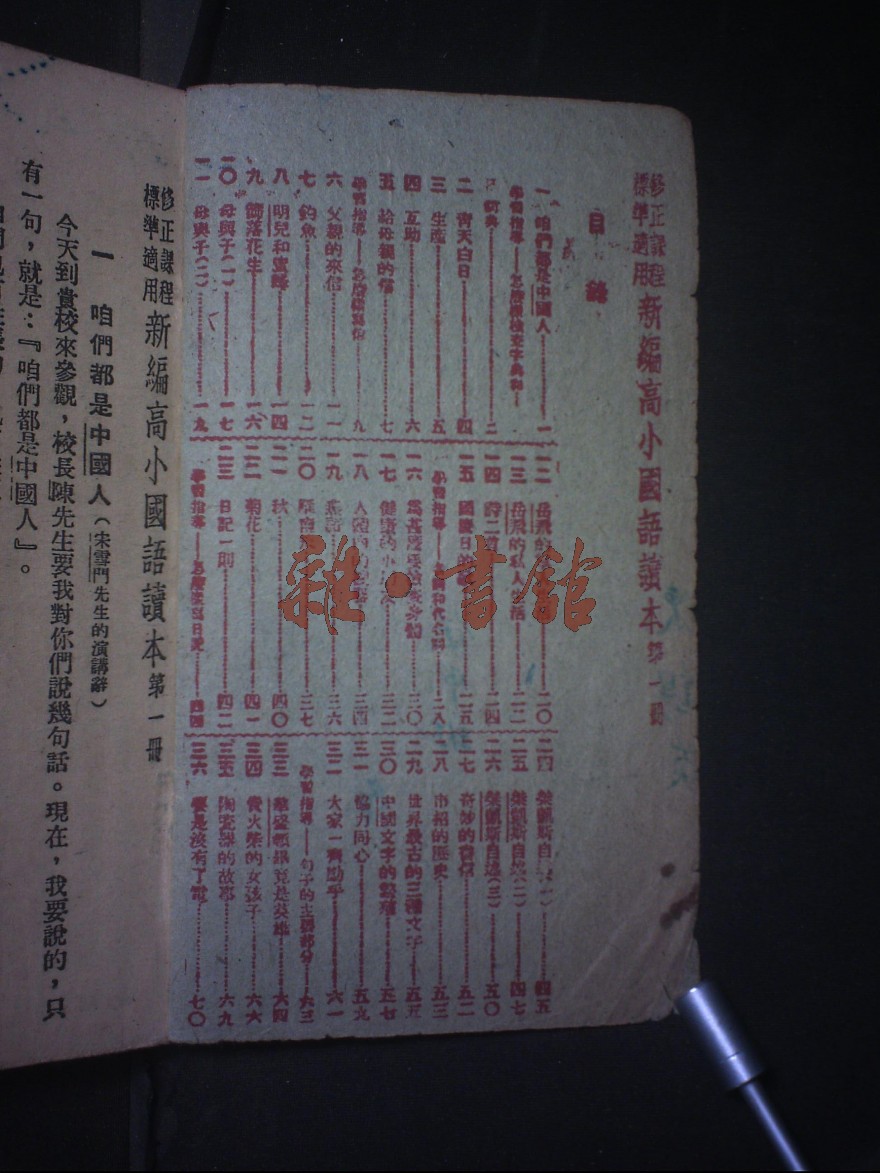 修正課程標準適用 新編高小國語讀本 第一冊
目錄
一 咱們都是中國人 一
學習指導 怎樣檢查字典和
二
二 青天白日 四
三 生產 五
四 互助 六
五 給母親的信 七
學習指導 九
六 父親的來信 一一
七 釣魚 一二
八 明兒和蜜蜂 一四
九 落花生 一六
一〇 母與子(一) 一七
一一 母與子(二) 一九
一二 岳飛 二〇
一三 岳飛的私人生活 二二
一四 詩二首 二四
一五 國慶日的 二五
學習指導 代名詞 二八
一六 三〇
一七 健康的小 三二
一八 人 三四
一九 三六
二〇 三七
二一 秋 四〇
二二 菊花 四一
二三 日記一則 四二
學習指導 怎樣寫日記 四四
二四 自述(一) 四五
二五 自述(二) 四七
二六 自述(三) 五〇
二七 奇妙的書信 五二
二八 市招的歷史 五三
二九 世界最古的三種文字 五五
三〇 中國文字的 五七
三一 協力同心 五九
三二 大家一齊動手 六一
學習指導 句子的主要部分 六三
三三 華盛頓畢竟是英雄 六四
三四 賣火柴的女孩子 六六
三五 陶瓷器的故鄉 六九
三六 要是沒有了電 七〇
雜·書館
修正課程標準適用 新編高小國語讀本 第一冊
一 咱們都是中國人(宋雪門先生的演講辭)
今天到貴校來參觀,校長陳先生要我對你們說幾句話。現在,我要說的,只
有一句,就是:『咱們都是中國人』。